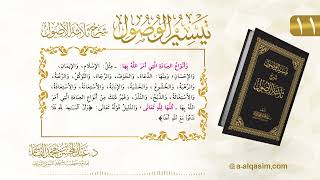 تيسير الوصول شرح ثلاثة الأصول
١١
وَأَنْوَاعُ العِبَادَةِ الَّتِي أَمَرَ اللَّهُ بِهَا - مِثْلُ: الإِسْلَامِ، وَالإِيمَانِ،
وَالإِحْسَانِ؛ وَمِنْهَا: الدُّعَاءُ، وَالخَوْفُ، وَالرَّجَاءُ، وَالتَّوَكُّلُ، وَالرَّغْبَةُ،
وَالرَّهْبَةُ، وَالخُشُوعُ، وَالخَشْيَةُ، وَالإِنَابَةُ، وَالِاسْتِعَانَةُ، وَالِاسْتِعَاذَةُ،
وَالِاسْتِغَاثَةُ، وَالذَّبْحُ، وَالنَّذْرُ، وَغَيْرُ ذَلِكَ مِنْ أَنْوَاعِ العِبَادَةِ الَّتِي أَمَرَ
اللَّهُ بِهَا - كُلُّهَا لِلَّهِ تَعَالَى، وَالدَّلِيلُ قَوْلُهُ تَعَالَى: ﴿وَأَنَّ المَسَاجِدَ لِلَّهِ فَلَا
تَدْعُوا مَعَ اللَّهِ أَحَدًا﴾
تيسير الوصول
شرح
ثلاثة الأصول
a-alqasim.com